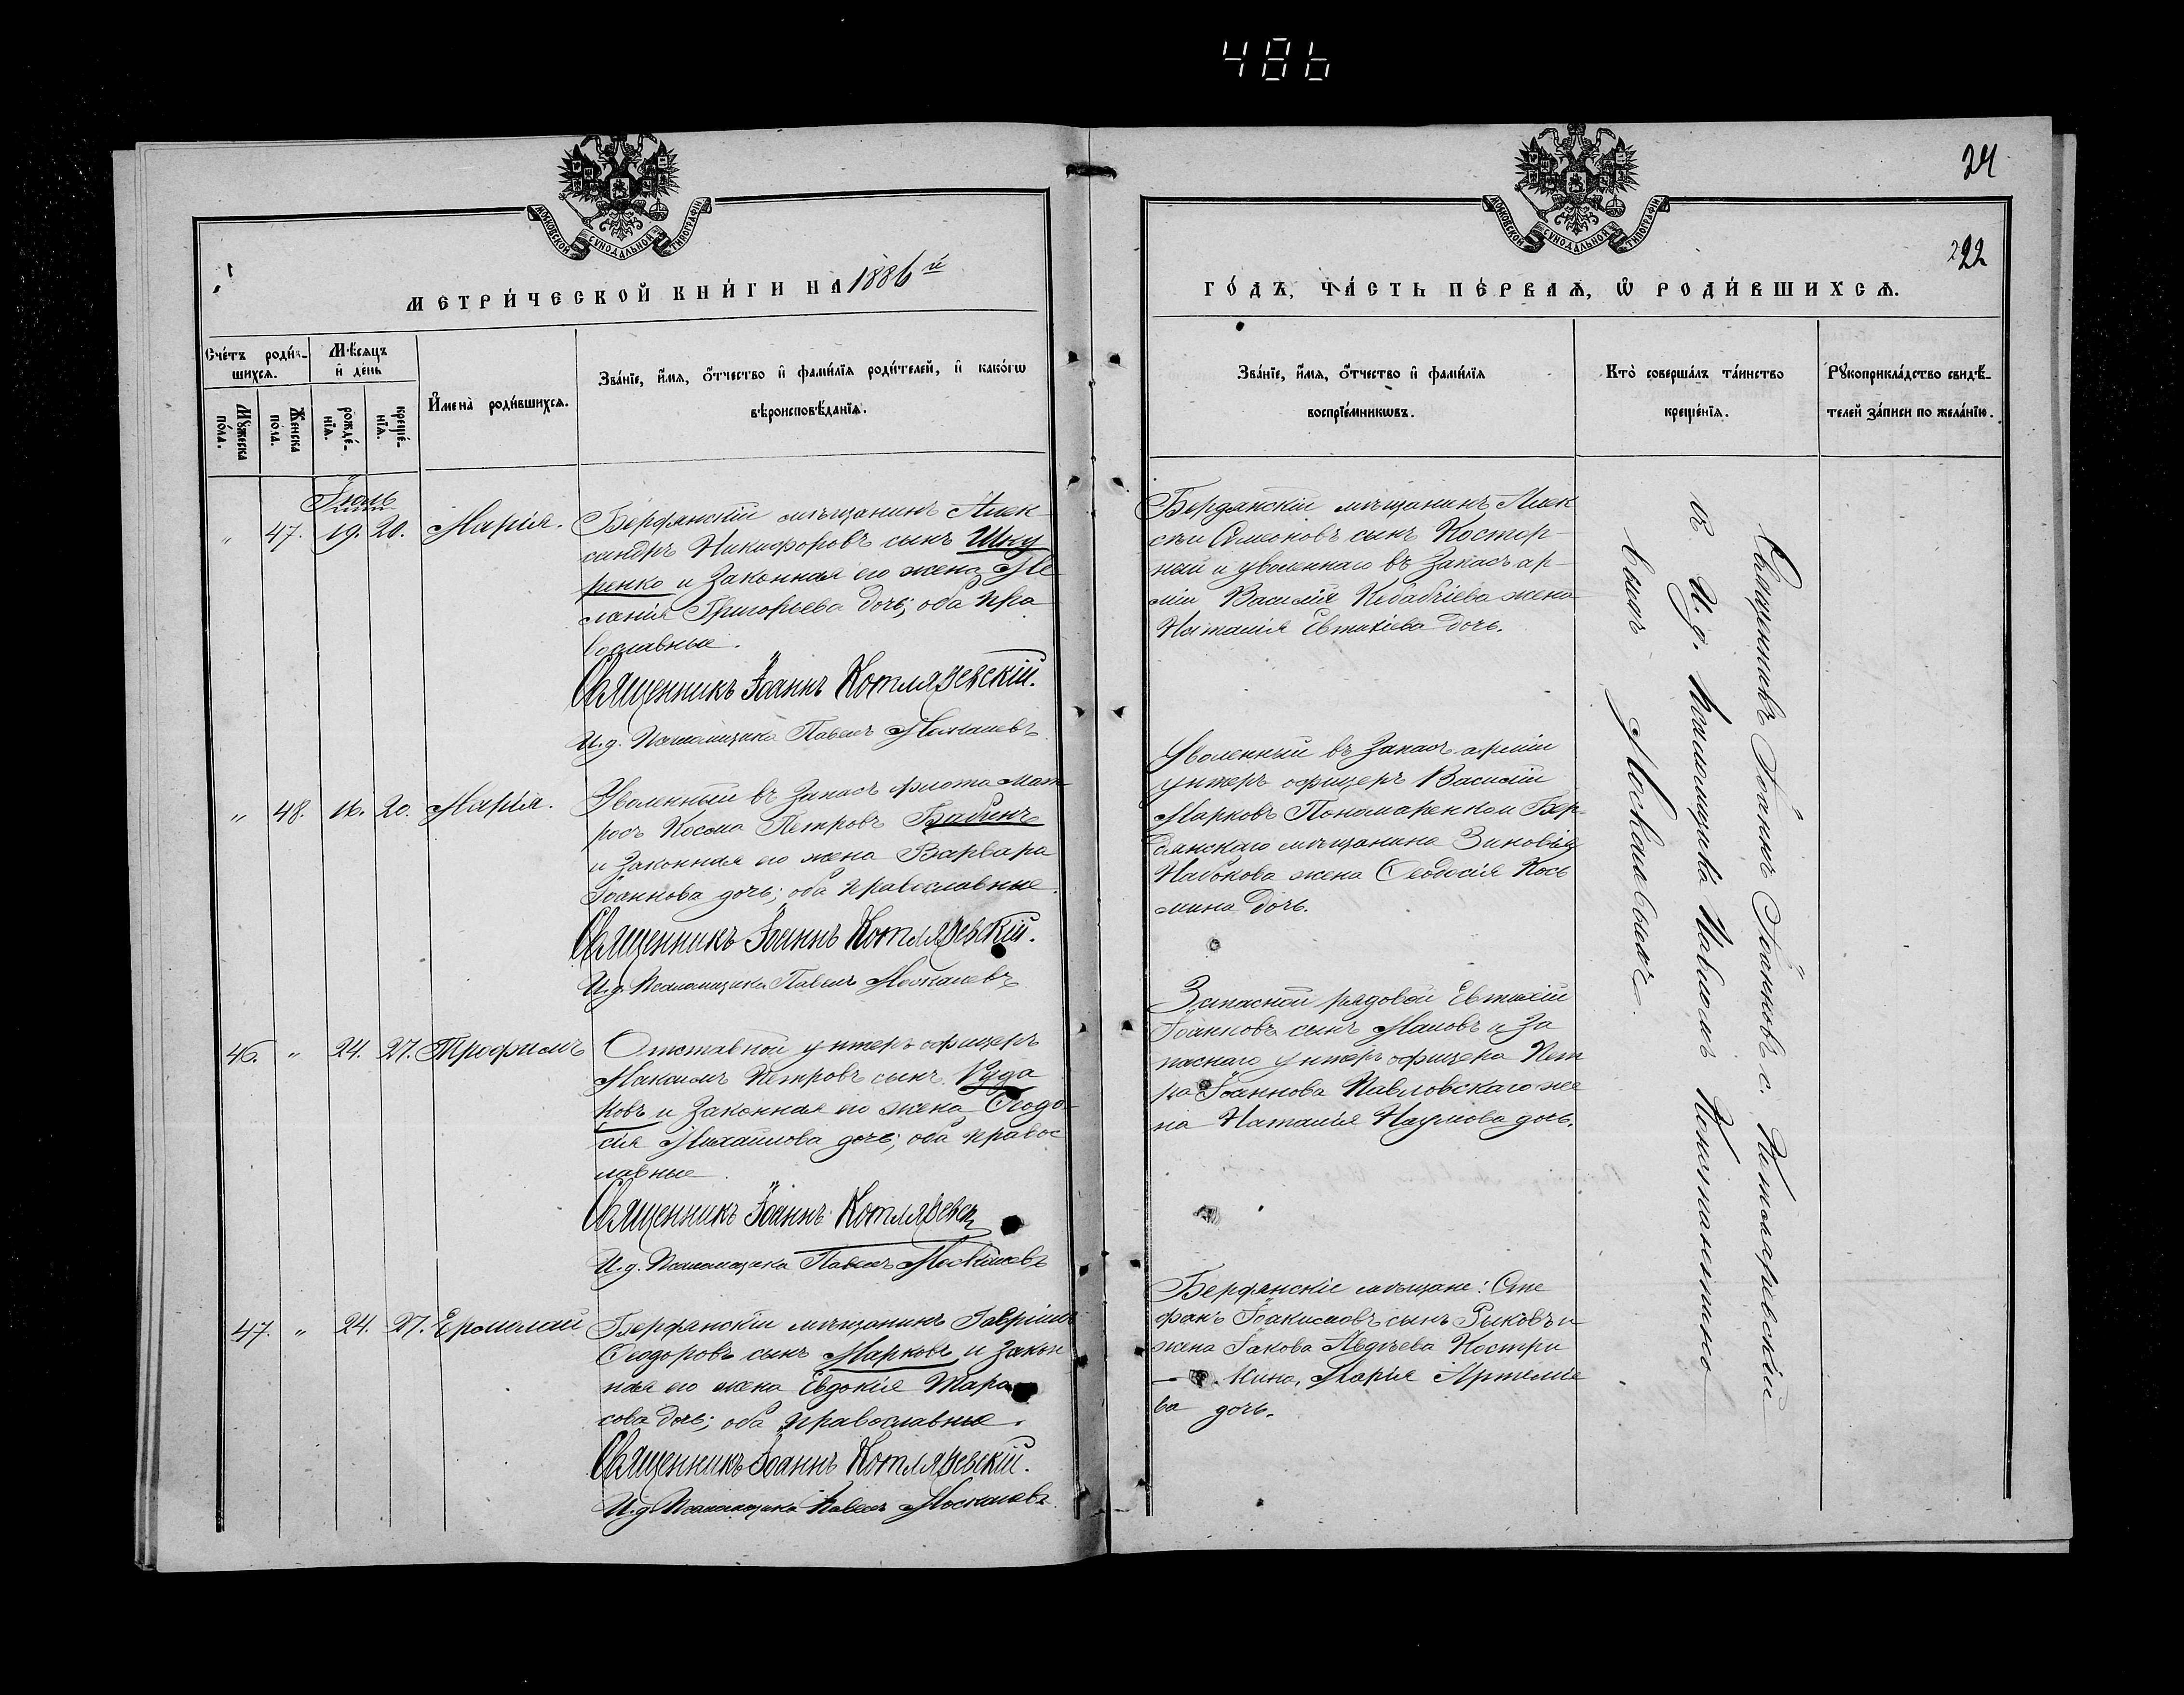 486
24
222
МОСКОВСКОЙ СУНОДАЛЬНОЙ ТИПОГРАФІИ
МЕТРИ́ЧЕСКОЙ КНИ́ГИ НА 1886й
Сче́тъ роди́в-
шихся.
Мѣ́сяцъ
и҆ де́нь
Мꙋ́жеска
по́ла.
Же́нска
по́ла.
рожде́-
нїя.
креще́-
нїя.
И҆мена̀ роди́вшихся.
Зва́нїе, и҆́мя, ѻ҆́тчество и҆ фами́лїя роди́телей, и҆ како́гѡ
вѣроисповѣ́данїя.
Іюль
" 47. 19. 20. Марія.
Бердянскій мѣщанинъ Алек
сандръ Никифоровъ сынъ Шку
ренко и законная его жена Ме
ланія Григорьева дочь; оба пра
вославные.
Священникъ Іоаннъ Котляревскій.
И.д. Псаломщика Павелъ Москалевъ
" 48. 16. 20. Марія.
Уволенный въ запасъ флота мат
росъ Косьма Петровъ Бабичъ
и законная его жена Варвара
Іоаннова дочь; оба православные.
Священникъ Іоаннъ Котляревскій.
И.д. Псаломщика Павелъ Москалевъ
46. " 24. 27. Трофимъ
Отставной унтеръ офицеръ
Максимъ Петровъ сынъ Руда
ковъ и законная его жена Ѳеодо
сія Михайлова дочь; оба правос
лавные.
Священникъ Іоаннъ Котляревск
И.д. Псаломщика Павелъ Москалевъ
47. " 24. 27. Ермолай
Бердянскій мѣщанинъ Гавріилъ
Ѳеодоровъ сынъ Марковъ и закон
ная его жена Евдокія Тара
сова дочь; оба православные.
Священникъ Іоаннъ Котляревскій.
И.д. Псаломщика Павелъ Москалевъ
МОСКОВСКОЙ СУНОДАЛЬНОЙ ТИПОГРАФІИ
ГО́ДЪ, ЧА́СТЬ ПЕ́РВАѦ, Ѡ҆ РОДИ́ВШИХСѦ.
Зва́нїе, и҆́мя, ѻ҆́тчество и҆ фами́лїя
воспрїе́мникѡвъ.
Кто̀ соверша́лъ та́инство
креще́нїя.
Рꙋкоприкла́дство свидѣ́-
телей за́писи по жела́нїю.
Бердянскій мѣщанинъ Алек
сѣй Симоновъ сынъ Костор-
ной и уволеннаго въ запасъ ар-
міи Василія Кебабчіева жена
Наталія Евтихіева дочь.
Уволенный въ запасъ арміи
унтеръ офицеръ Василій
Марковъ Пономаренко и Бер-
дянскаго мѣщанина Зиновія
Набокова жена Ѳеодосія Кось
мина дочь.
Запасной рядовой Евтихій
Іоанновъ сынъ Маловъ и за
паснаго унтеръ офицера Пет
ра Іоаннова Павловскаго же
на Наталія Наумова дочь.
Бердянскіе мѣщане: Сте
фанъ Іоакимовъ сынъ Рыковъ и
жена Іакова Авдѣева Костри
кина, Марія Артеміе
ва дочь.
Священникъ Іоаннъ Іоанновъ с. Котляревскій
съ И.д. Псаломщика Павломъ Константино
вымъ Москалевымъ.